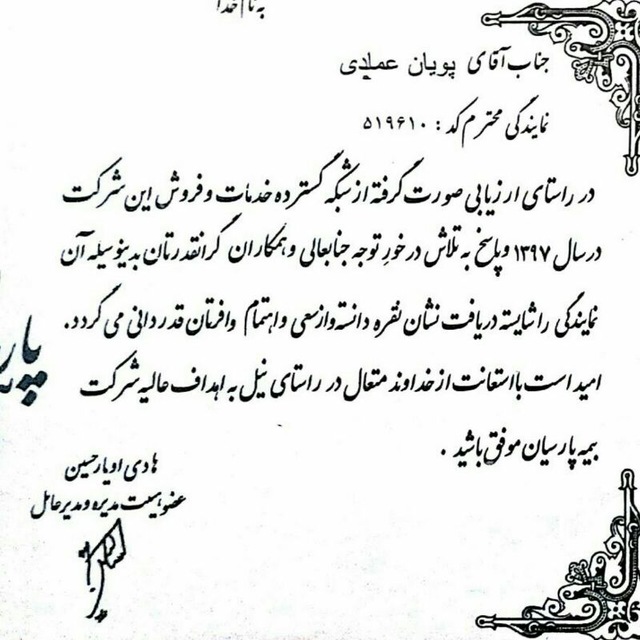 به نام خدا
جناب آقای پویان عمادی
نمایندگی محترم کد : ۵۱۹۶۱۰
در راستای ارزیابی صورت گرفته از شبکه گسترده خدمات و فروش این شرکت
در سال ۱۳۹۷ و پاسخ به تلاش در خور توجه جنابعالی و همکاران گرانقدرتان بدینوسیله آن
نمایندگی را شایسته دریافت نشان نقره دانسته و از سعی و اهتمام وافرتان قدردانی می گردد.
امید است با استعانت از خداوند متعال در راستای نیل به اهداف عالیه شرکت
بیمه پارسیان موفق باشید .
هادی اویارحسین
عضو هیئت مدیره و مدیرعامل